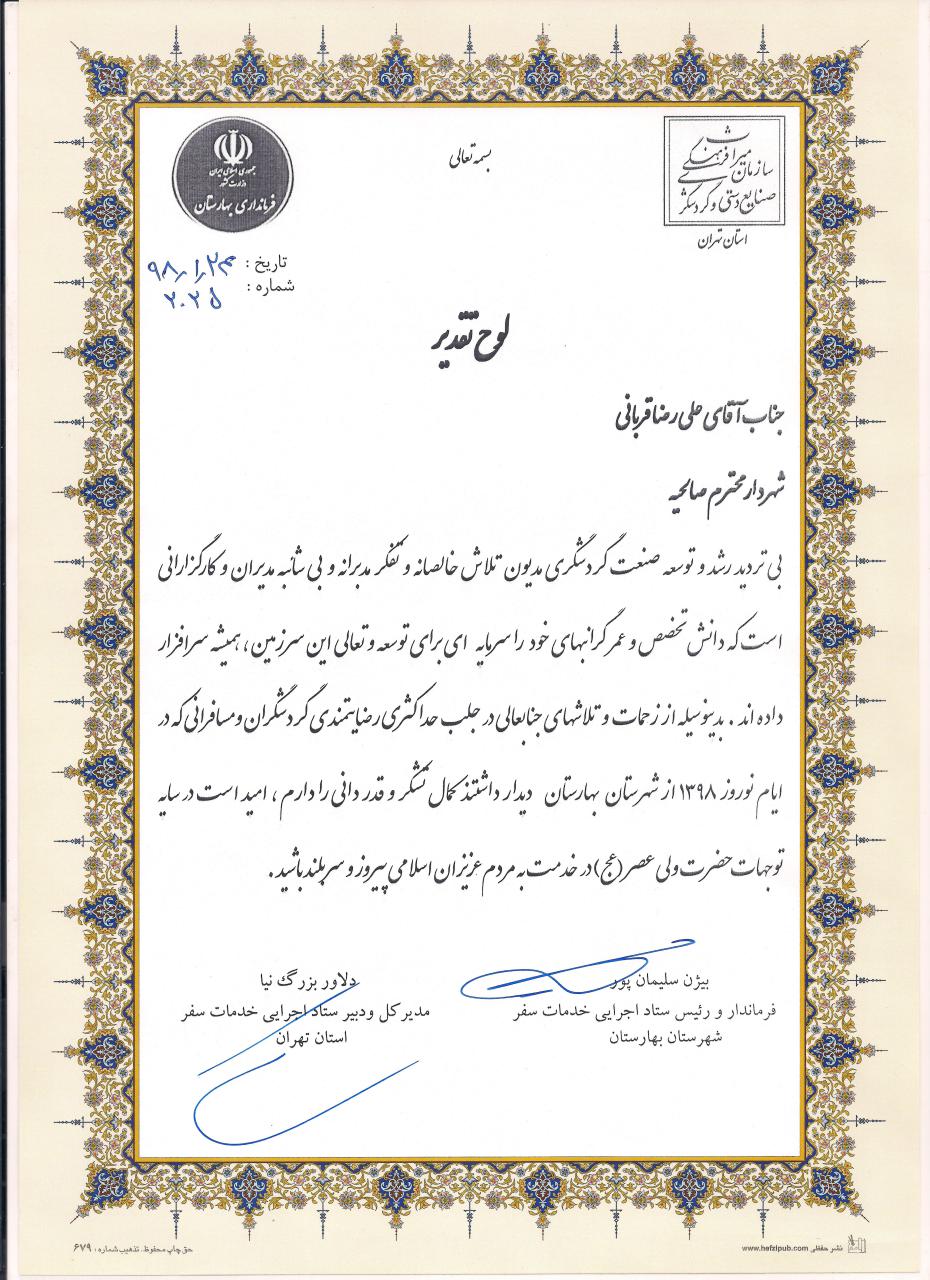 بسمه تعالی
سازمان میراث فرهنگی
صنایع دستی و گردشگری
استان تهران
جمهوری اسلامی ایران
وزارت کشور
فرمانداری بهارستان
تاریخ : ۹۸/۱/۲۴
شماره : ۲۰۲۵
لوح تقدیر
جناب آقای علی رضا قربانی
شهردار محترم صالحیه
بی تردید رشد و توسعه صنعت گردشگری مدیون تلاش خالصانه و تفکر مدبرانه و بی شائبه مدیران و کارگزارانی
است که دانش تخصص و عمر گرانبهای خود را سرمایه ای برای توسعه و تعالی این سرزمین ، همیشه سرافزار
داده اند . بدینوسیله از زحمات و تلاشهای جنابعالی در جلب حداکثری رضایتمندی گردشگران و مسافرانی که در
ایام نوروز ۱۳۹۸ از شهرستان بهارستان دیدار داشتند کمال تشکر و قدردانی را دارم ، امید است در سایه
توجهات حضرت ولی عصر (عج) در خدمت به مردم عزیز ایران اسلامی پیروز و سربلند باشید .
بیژن سلیمان پور
فرماندار و رئیس ستاد اجرایی خدمات سفر
شهرستان بهارستان
دلاور بزرگ نیا
مدیر کل ودبیر ستاد اجرایی خدمات سفر
استان تهران
نشر حفظی www.hefzipub.com
حق چاپ محفوظ. تذهیب شماره : ۶۷۹